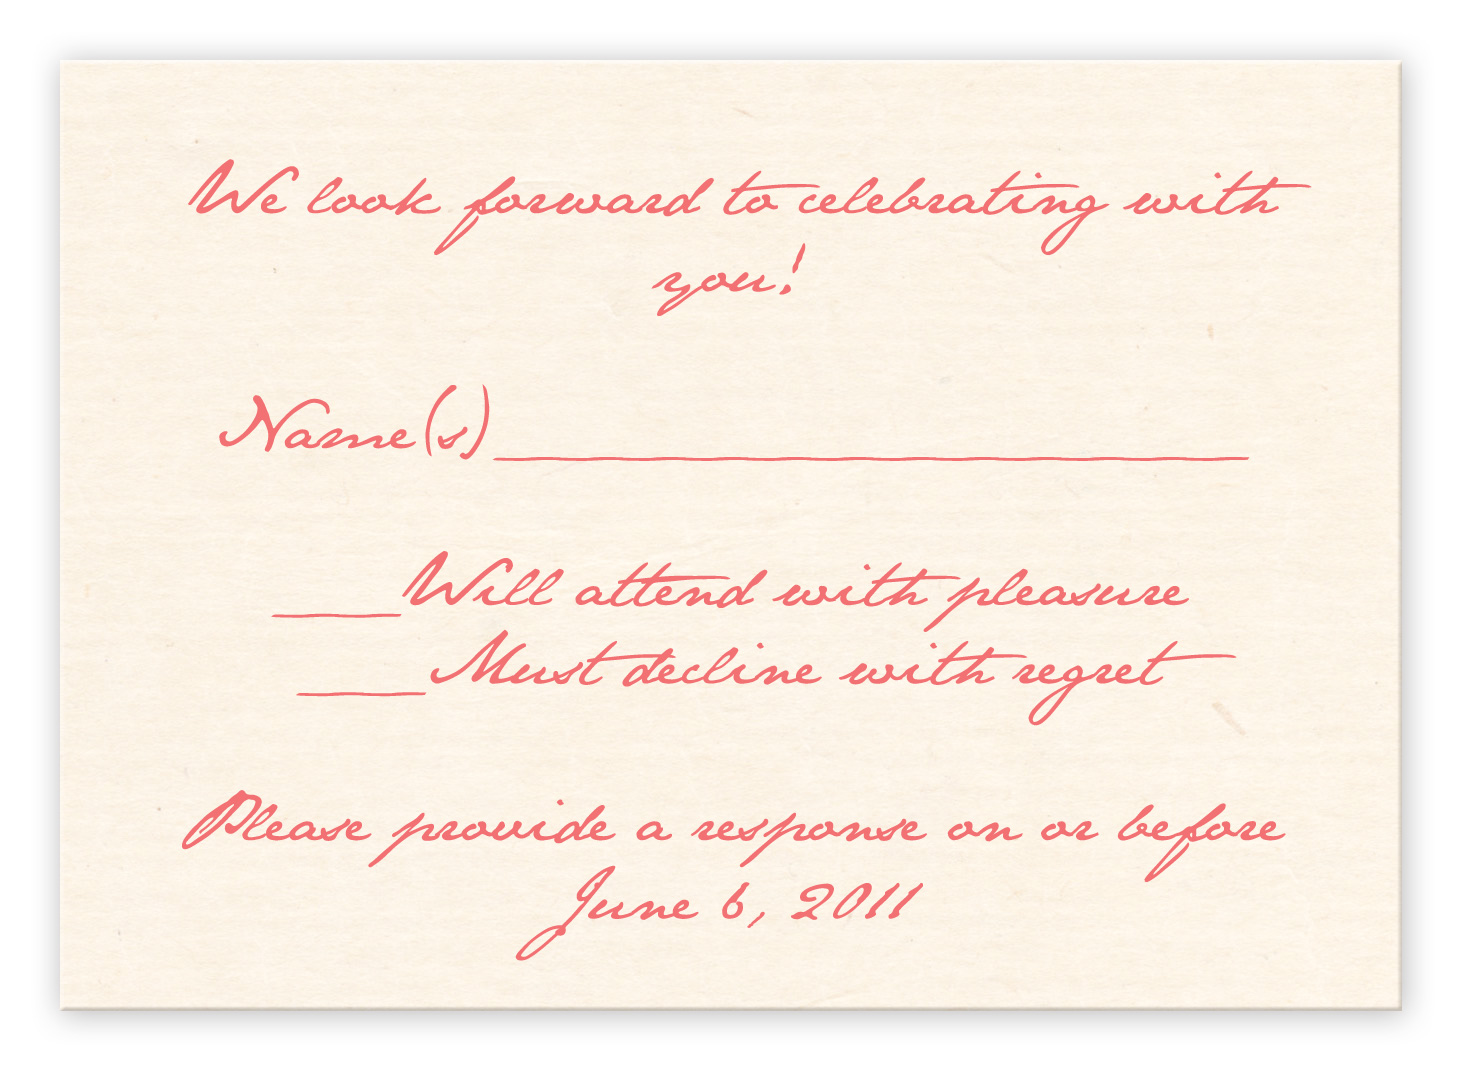 We look forward to celebrating with
you!
Name(s)______________________
____Will attend with pleasure
____Must decline with regret
Please provide a response on or before
June 6, 2011